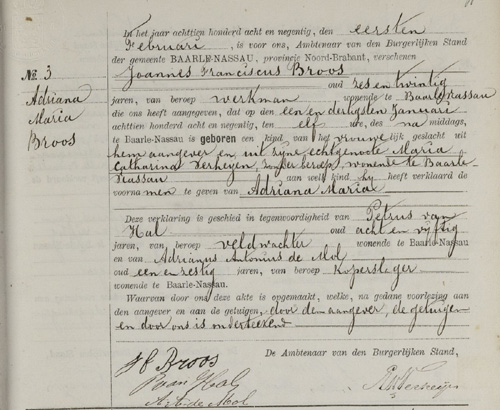 In het jaar achttien honderd acht en negentig, den eersten
Februari, is voor ons, Ambtenaar van den Burgerlijken Stand
der gemeente BAARLE-NASSAU, provincie Noord-Brabant, verschenen
No. 3
Joannes Franciscus Broos
Adriana
Maria
Broos
oud zes en twintig
jaren, van beroep werkman wonende te Baarle-Nassau
die ons heeft aangegeven, dat op den een en dertigsten Januari
achttien honderd acht en negentig, ten elf ure, des na middags,
te Baarle-Nassau is geboren een kind van het vrouwelijk geslacht uit
hem aangever en uit zijne echtgenoote Maria
Catharina Verheijen, zonder beroep, wonende te Baarle-
Nassau aan welk kind hij heeft verklaard de
voornamen te geven van Adriana Maria
Deze verklaring is geschied in tegenwoordigheid van Petrus van
Hal oud acht en vijftig
jaren, van beroep veldwachter wonende te Baarle-Nassau
en van Adrianus Antonius de Mol
oud een en zestig jaren, van beroep koperslager
wonende te Baarle-Nassau.
Waarvan door ons deze akte is opgemaakt, welke, na gedane voorlezing aan
den aangever en aan de getuigen, door den aangever, de getuigen
en door ons is onderteekend
De Ambtenaar van den Burgerlijken Stand,
Broos
van Hal
de Mol